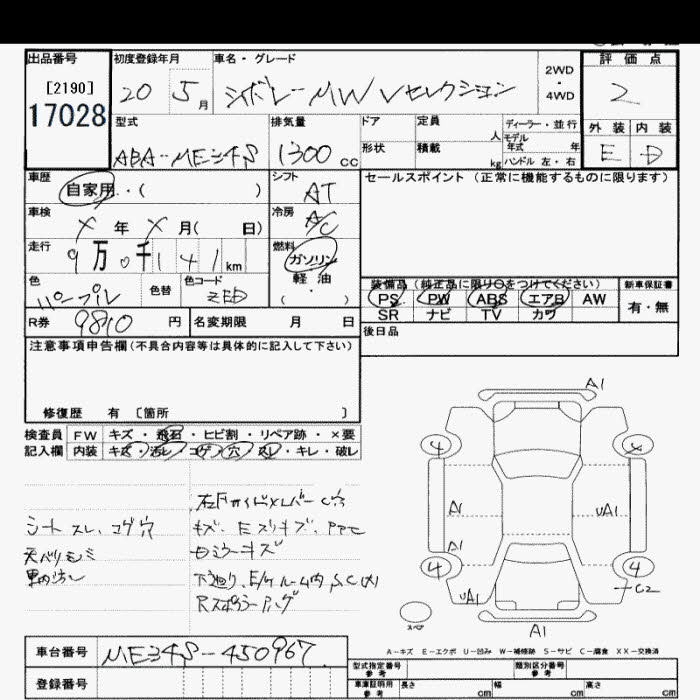 出品番号 初度登録年月 車名・グレード 評価点
[2190] 20 5月 シボレーMW Vセレクション 2WD・4WD 2
17028
型式 排気量 ドア 定員 人 ディーラー・並行 外装 内装
形状 積載 kg モデル年式 年 ハンドル 左・右
ABA-ME34S 1300cc E D
車歴 シフト セールスポイント（正常に機能するものに限ります）
自家用・・( ) AT
車検 冷房
X年X月( 日) A/C
走行 燃料
9万0千141km ガソリン
色 色替 色コード 軽油
パープル ZED ・( )
装備品（純正品に限り○をつけてください） 新車保証書
PS PW ABS エアB AW 有・無
SR ナビ TV カワ
R券 9810円 名変期限 月 日 後日品
注意事項申告欄(不具合内容等は具体的に記入して下さい)
修復歴 有〔箇所 〕
検査員 FW キズ・飛石・ヒビ割・リペア跡・×要
記入欄 内装 キズ・汚レ・コゲ・穴・スレ・キレ・破レ
A1
4
A1 uA1
A1
4 4
C2
uA1
スペア
A1
シート スレ、コゲ穴
天バリシミ
キズ、Eスリキズ
Rスポイラー
A-キズ E-エクボ U-凹み W-補修跡 S-サビ C-腐食 XX-交換済
車台番号 ME34S-450967
登録番号
型式指定番号 参考 類別区分番号 参考
車庫証明用 参考 長さ cm 幅 cm 高さ cm